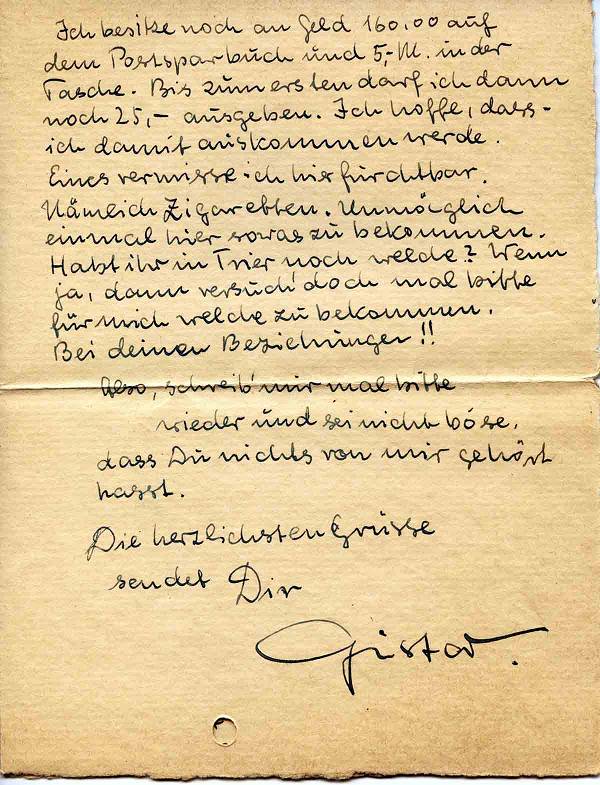 Ich besitze noch an Geld 160.00 auf
dem Postsparbuch und 5,-M. in der
Tasche. Bis zum ersten darf ich dann
noch 25,- ausgeben. Ich hoffe, dass-
ich damit auskommen werde.
Eines vermisse ich hier furchtbar.
Nämlich Zigaretten. Unmöglich
einmal hier sowas zu bekommen.
Habt ihr in Trier noch welche? Wenn
ja, dann versuch' doch mal bitte
für mich welche zu bekommen.
Bei deinen Beziehungen!!
Also, schreib' mir mal bitte
wieder und sei nicht böse,
dass Du nichts von mir gehört
hast.
Die herzlichsten Grüsse
sendet Dir
Gustav.